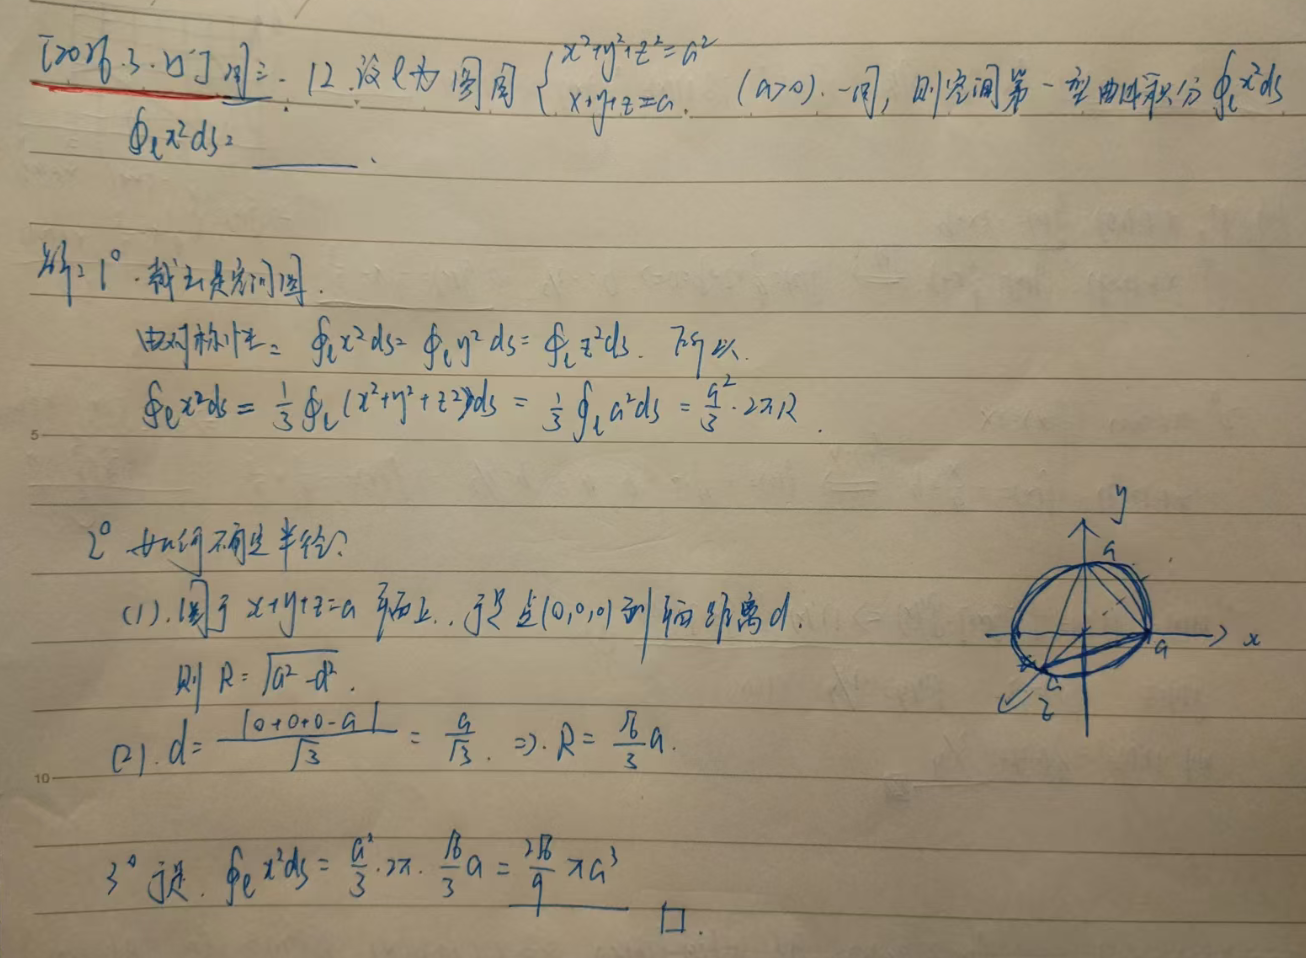 [2026.3.17] 周三. 12. 设 l 为圆周 { x²+y²+z²=a² x+y+z=a. (a>0). 一周, 则空间第一型曲线积分 ∮_l x²ds
∮_l x²ds= ______.
解: 1°. 截面是空间圆.
由对称性: ∮_l x²ds= ∮_l y²ds= ∮_l z²ds. 所以.
∮_l x²ds = 1/3 ∮_l (x²+y²+z²)ds = 1/3 ∮_l a²ds = a²/3 · 2πR.
5
2° 如何确定半径?
(1). 圆于 x+y+z=a 平面上., 于是 点(0,0,0)到平面距离d.
则 R=√(a²-d²).
(2). d= |0+0+0-a|/√3 = a/√3. ⇒. R= √6/3 a.
10
3° 于是. ∮_l x²ds= a²/3 · 2π · √6/3 a = 2√6/9 πa³
□.
y
a
x
a
a
z